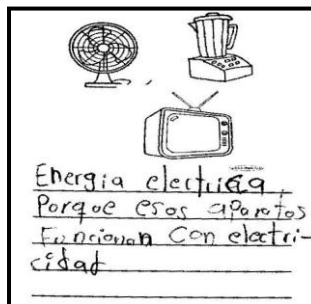 Energia electrica,
Porque esos aparatos
Funcionan con electri-
cidad